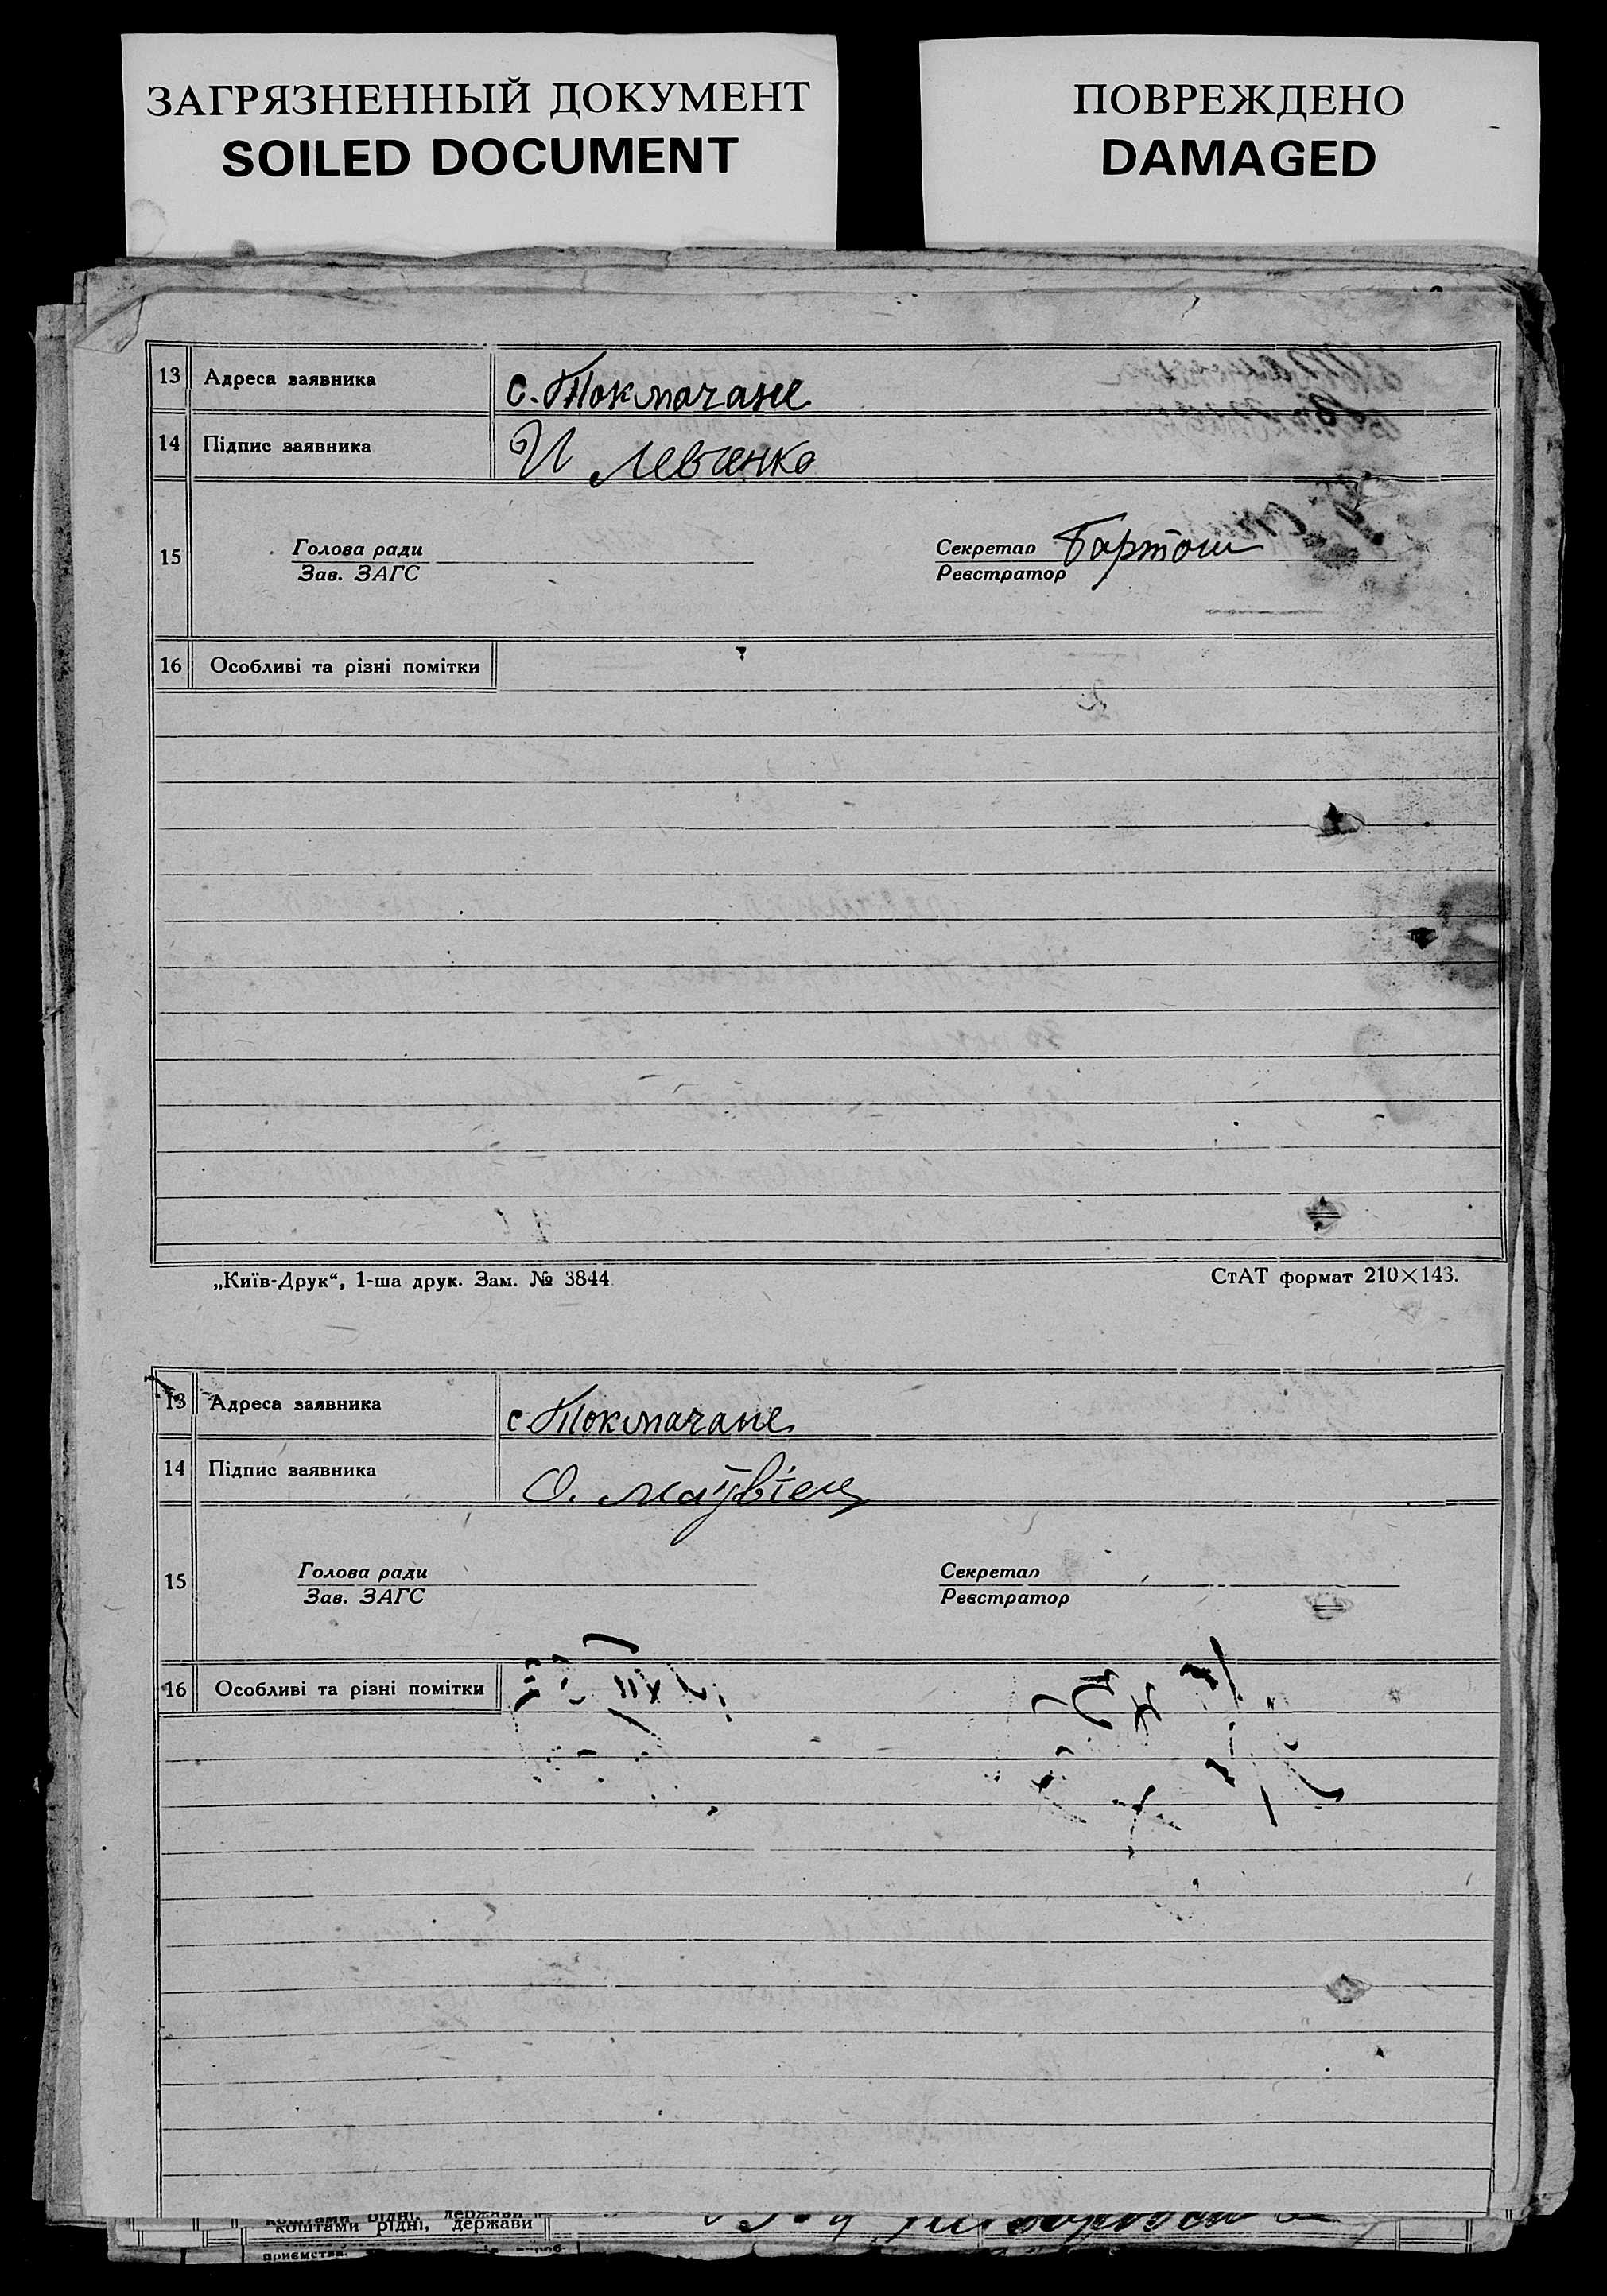 ЗАГРЯЗНЕННЫЙ ДОКУМЕНТ
SOILED DOCUMENT
ПОВРЕЖДЕНО
DAMAGED
13 Адреса заявника с. Токмачане
14 Підпис заявника И Левченко
15 Голова ради
Зав. ЗАГС
Секретар Бартош
Реєстратор
16 Особливі та різні помітки
„Київ-Друк“, 1-ша друк. Зам. № 3844
СтАТ формат 210×143.
13 Адреса заявника с Токмачане
14 Підпис заявника О.
15 Голова ради
Зав. ЗАГС
Секретар
Реєстратор
16 Особливі та різні помітки
коштами рідні, держави
коштами рідні, держави